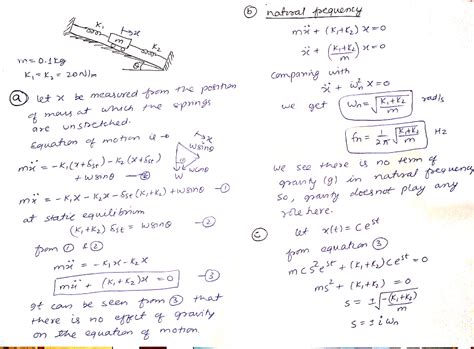 K₁
x
m
K₂
θ
m = 0.1kg
K₁ = K₂ = 20 N/m
(a) let x be measured from the position
of mass at which the springs
are unstretched.
Equation of motion is →
mẍ = -K₁(x+δst) - K₂(x+δst)
+ wsinθ
x
wsinθ
θ
W
mẍ = -K₁x - K₂x - δst(K₁+K₂) + wsinθ —(1)
at static equilibrium
(K₁+K₂) δst = wsinθ —(2)
from (1) & (2)
mẍ = -K₁x - K₂x
mẍ + (K₁+K₂)x = 0 —(3)
It can be seen from (3) that
there is no effect of gravity
on the equation of motion.
(b) natural frequency
mẍ + (K₁+K₂) x = 0
ẍ + (K₁+K₂)/m x = 0
comparing with
ẍ + ωn² x = 0
we get ωn = √(K₁+K₂)/m rad/s
fn = 1/2π √(K₁+K₂)/m Hz
we see there is no term of
gravity (g) in natural frequency
so, gravity doesnot play any
role here.
(c) let x(t) = C e^st
from equation (3)
mCs²e^st + (K₁+K₂)Ce^st = 0
ms² + (K₁+K₂) = 0
s = ±√-(K₁+K₂)/m
s = ± i ωn